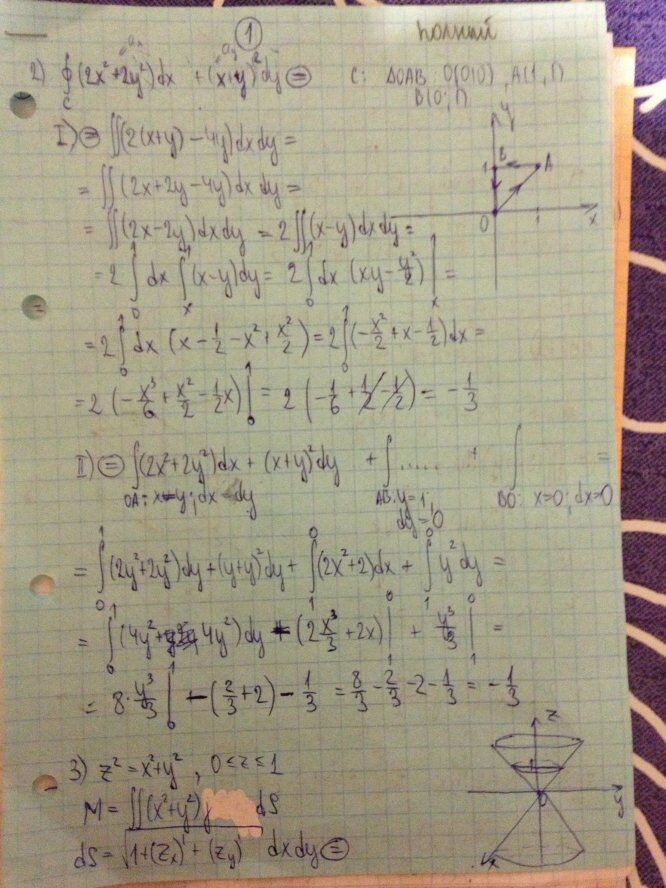 1 полный
2) ∮_C (2x²+2y²)dx + (x+y)²dy ⊜ C: ΔOAB O(0;0), A(1,1)
B(0;1)
I) ⊜ ∬(2(x+y) - 4y)dxdy =
= ∬(2x+2y-4y)dxdy =
= ∬(2x-2y)dxdy = 2∬(x-y)dxdy =
= 2∫₀¹dx ∫ₓ¹(x-y)dy = 2∫₀¹dx (xy - y²/2)|ₓ¹ =
= 2∫₀¹dx (x - 1/2 - x² + x²/2) = 2∫₀¹(-x²/2 + x - 1/2)dx =
= 2(-x³/6 + x²/2 - 1/2x)|₀¹ = 2(-1/6 + 1/2 - 1/2) = -1/3
II) ⊜ ∫(2x²+2y²)dx + (x+y)²dy + ∫ ..... + ∫ =
OA: x=y; dx=dy AB: y=1; BO: x=0; dx=0
dy=0
= ∫₀¹(2y²+2y²)dy + (y+y)²dy + ∫₁⁰(2x²+2)dx + ∫₁⁰y²dy =
= ∫₀¹(4y²+4y²)dy + (2x³/3 + 2x)|₁⁰ + y³/3|₁⁰ =
= 8·y³/3|₀¹ - (2/3+2) - 1/3 = 8/3 - 2/3 - 2 - 1/3 = -1/3
3) z² = x²+y², 0≤z≤1
M = ∬(x²+y²) dS
dS = √1+(zₓ)²+(z_y)² dxdy ⊜
y
1 B A
0 1 x
z
1
0 y
x